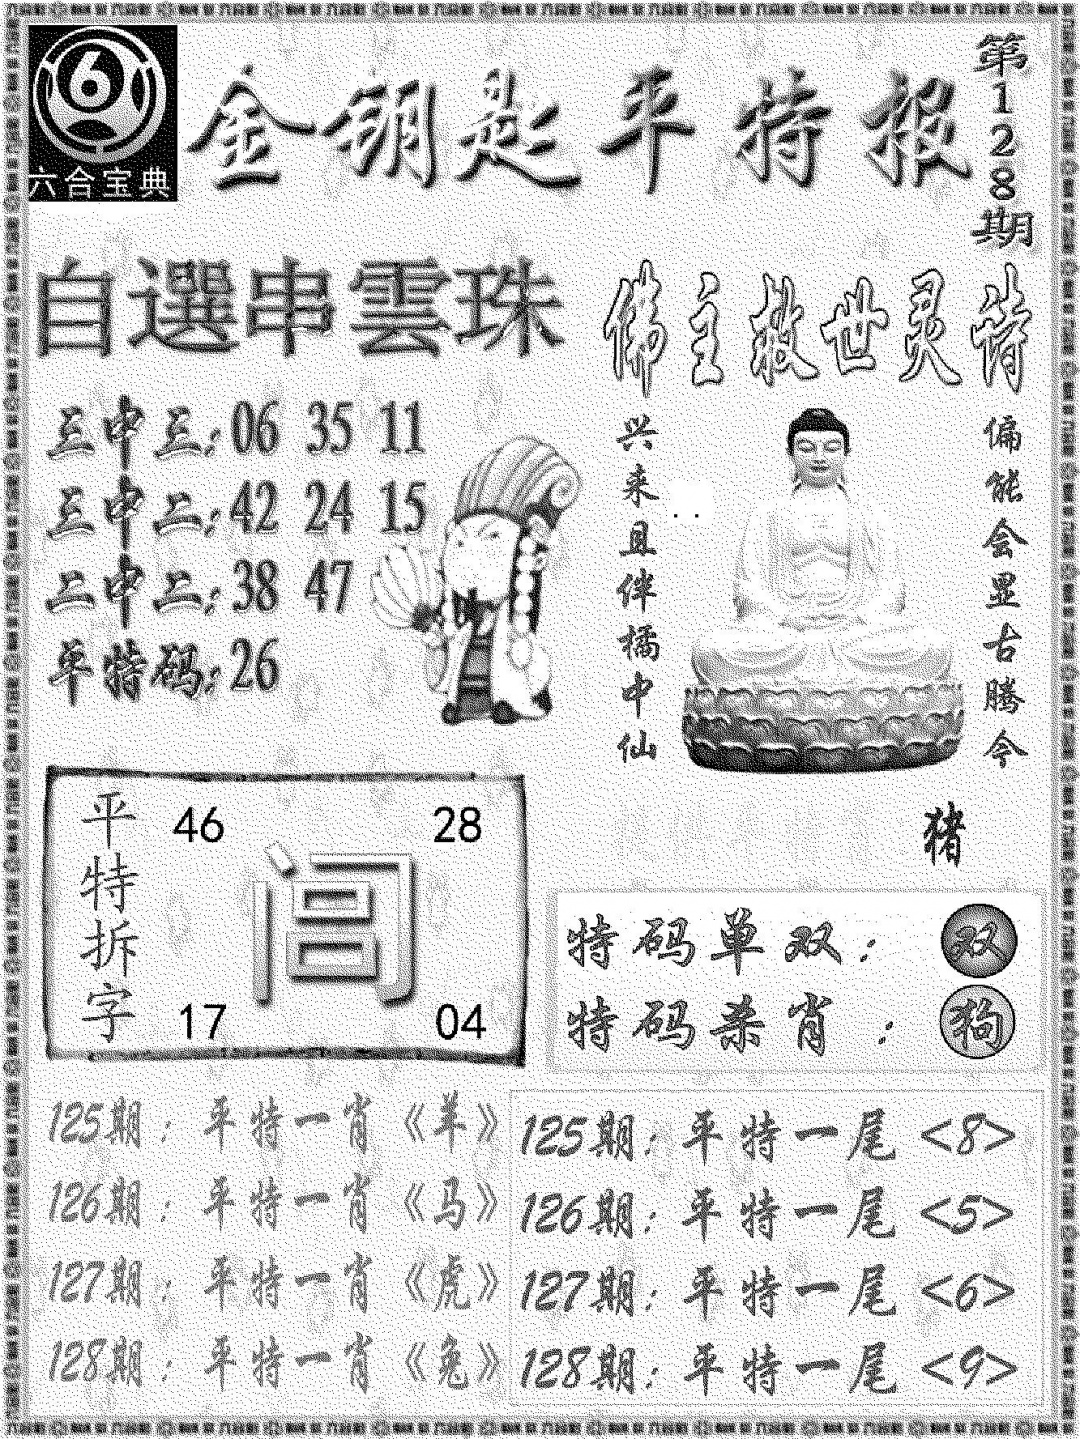 六合宝典
金钥匙平特报
第128期
自選串雲珠
三中三:06 35 11
三中二:42 24 15
二中二:38 47
平特码:26
佛主救世灵诗
偏能会显古腾今
兴来且伴橘中仙
猪
平特拆字
46 28
闾
17 04
特码单双: 双
特码杀肖: 狗
125期:平特一肖《羊》
126期:平特一肖《马》
127期:平特一肖《虎》
128期:平特一肖《兔》
125期:平特一尾<8>
126期:平特一尾<5>
127期:平特一尾<6>
128期:平特一尾<9>